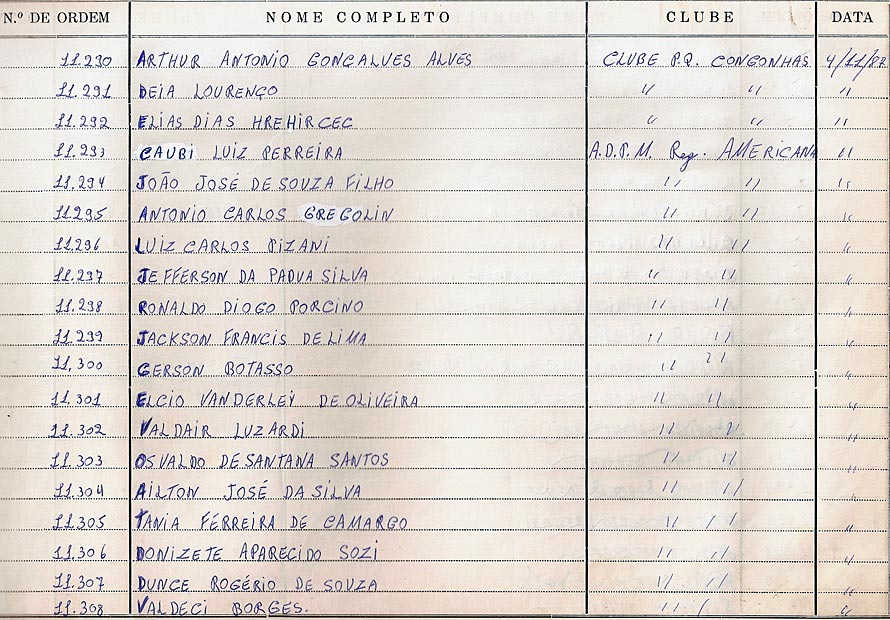 N.º DE ORDEM NOME COMPLETO CLUBE DATA
11.230 ARTHUR ANTONIO GONCALVES ALVES CLUBE P.Q. CONGONHAS 4/11/87
11.291 DEIA LOURENÇO " " "
11.292 ELIAS DIAS HREHIRCEC " " "
11.293 CAUBI LUIZ PERREIRA A.D.P.M. Reg. AMERICANA "
11.294 JOÃO JOSÉ DE SOUZA FILHO " " "
11295 ANTONIO CARLOS GREGOLIN " " "
11.296 LUIZ CARLOS PIZANI " " "
11.297 JEFFERSON DA PADUA SILVA " " "
11.298 RONALDO DIOGO PORCINO " " "
11.299 JACKSON FRANCIS DE LIMA " " "
11.300 GERSON BOTASSO " " "
11.301 ELCIO VANDERLEY DE OLIVEIRA " " "
11.302 VALDAIR LUZARDI " " "
11.303 OSVALDO DE SANTANA SANTOS " " "
11.304 AILTON JOSÉ DA SILVA " " "
11.305 TANIA FERREIRA DE CAMARGO " " "
11.306 DONIZETE APARECIDO SOZI " " "
11.307 DUNCE ROGÉRIO DE SOUZA " " "
11.308 VALDECI BORGES. " " "